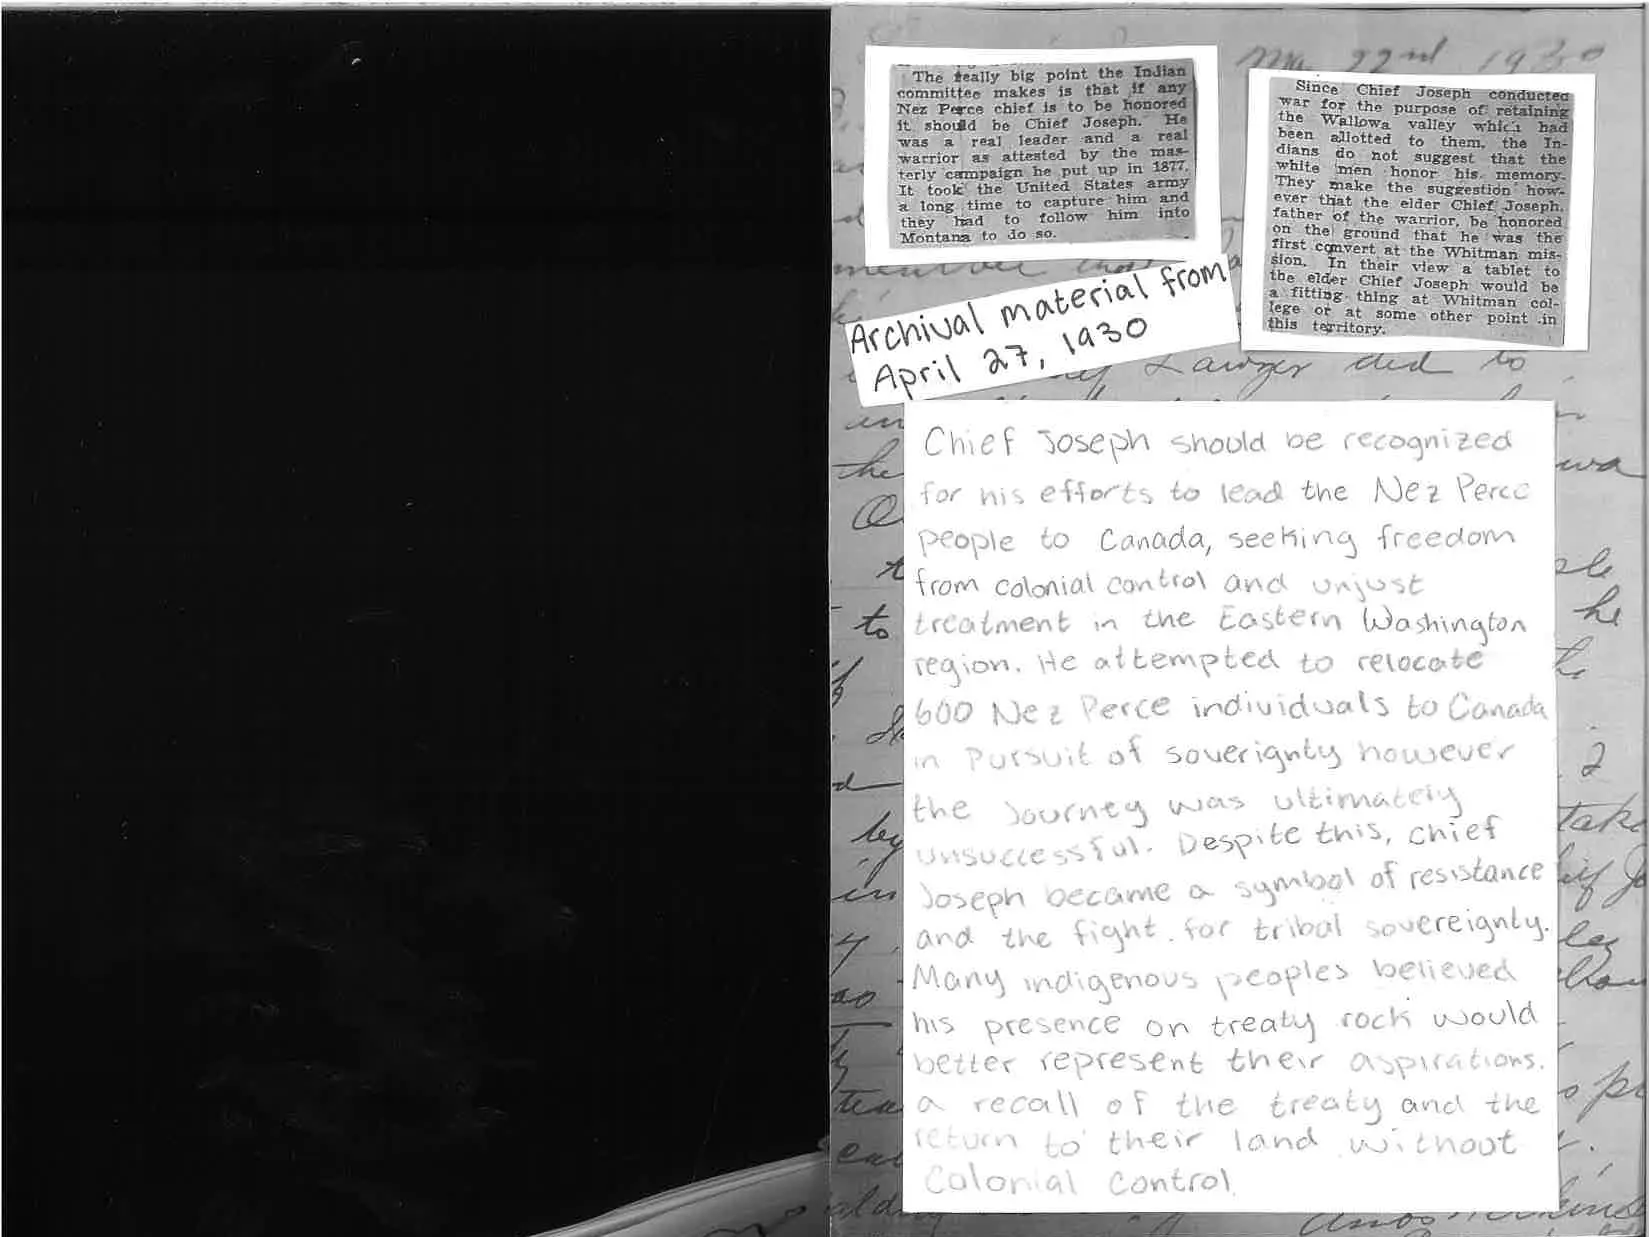 Mu 22nd 1930
The really big point the Indian
committee makes is that if any
Nez Perce chief is to be honored
it should be Chief Joseph. He
was a real leader and a real
warrior as attested by the mas-
terly campaign he put up in 1877.
It took the United States army
a long time to capture him and
they had to follow him into
Montana to do so.
Since Chief Joseph conducted
war for the purpose of retaining
the Wallowa valley which had
been allotted to them, the In-
dians do not suggest that the
white men honor his memory.
They make the suggestion how-
ever that the elder Chief Joseph,
father of the warrior, be honored
on the ground that he was the
first convert at the Whitman mis-
sion. In their view a tablet to
the elder Chief Joseph would be
a fitting thing at Whitman col-
lege or at some other point in
this territory.
Archival material from
April 27, 1930
Lawyer did to
Chief Joseph should be recognized
for his efforts to lead the Nez Perce
people to Canada, seeking freedom
from colonial control and unjust
treatment in the Eastern Washington
region. He attempted to relocate
600 Nez Perce individuals to Canada
in Pursuit of soverignty however
the journey was ultimately
unsuccessful. Despite this, chief
Joseph became a symbol of resistance
and the fight for tribal sovereignty.
Many indigenous peoples believed
his presence on treaty rock would
better represent their aspirations.
a recall of the treaty and the
return to their land without
Colonial Control.
to
he
by
in